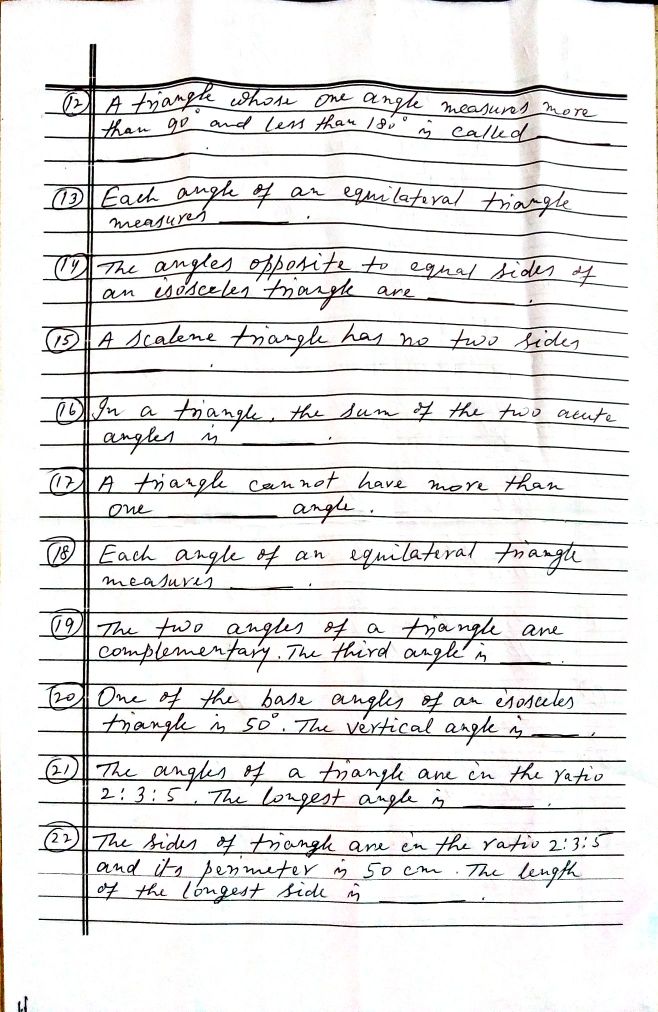 (12) A triangle whose one angle measures more
than 90° and less than 180° is called ______
______.
(13) Each angle of an equilateral triangle
measures ______.
(14) The angles opposite to equal sides of
an isosceles triangle are ______.
(15) A scalene triangle has no two sides
______.
(16) In a triangle, the sum of the two acute
angles is ______.
(17) A triangle cannot have more than
one ______ angle.
(18) Each angle of an equilateral triangle
measures ______.
(19) The two angles of a triangle are
complementary. The third angle is ______.
(20) One of the base angles of an isosceles
triangle is 50°. The vertical angle is ______.
(21) The angles of a triangle are in the ratio
2:3:5. The longest angle is ______.
(22) The sides of triangle are in the ratio 2:3:5
and its perimeter is 50 cm. The length
of the longest side is ______.